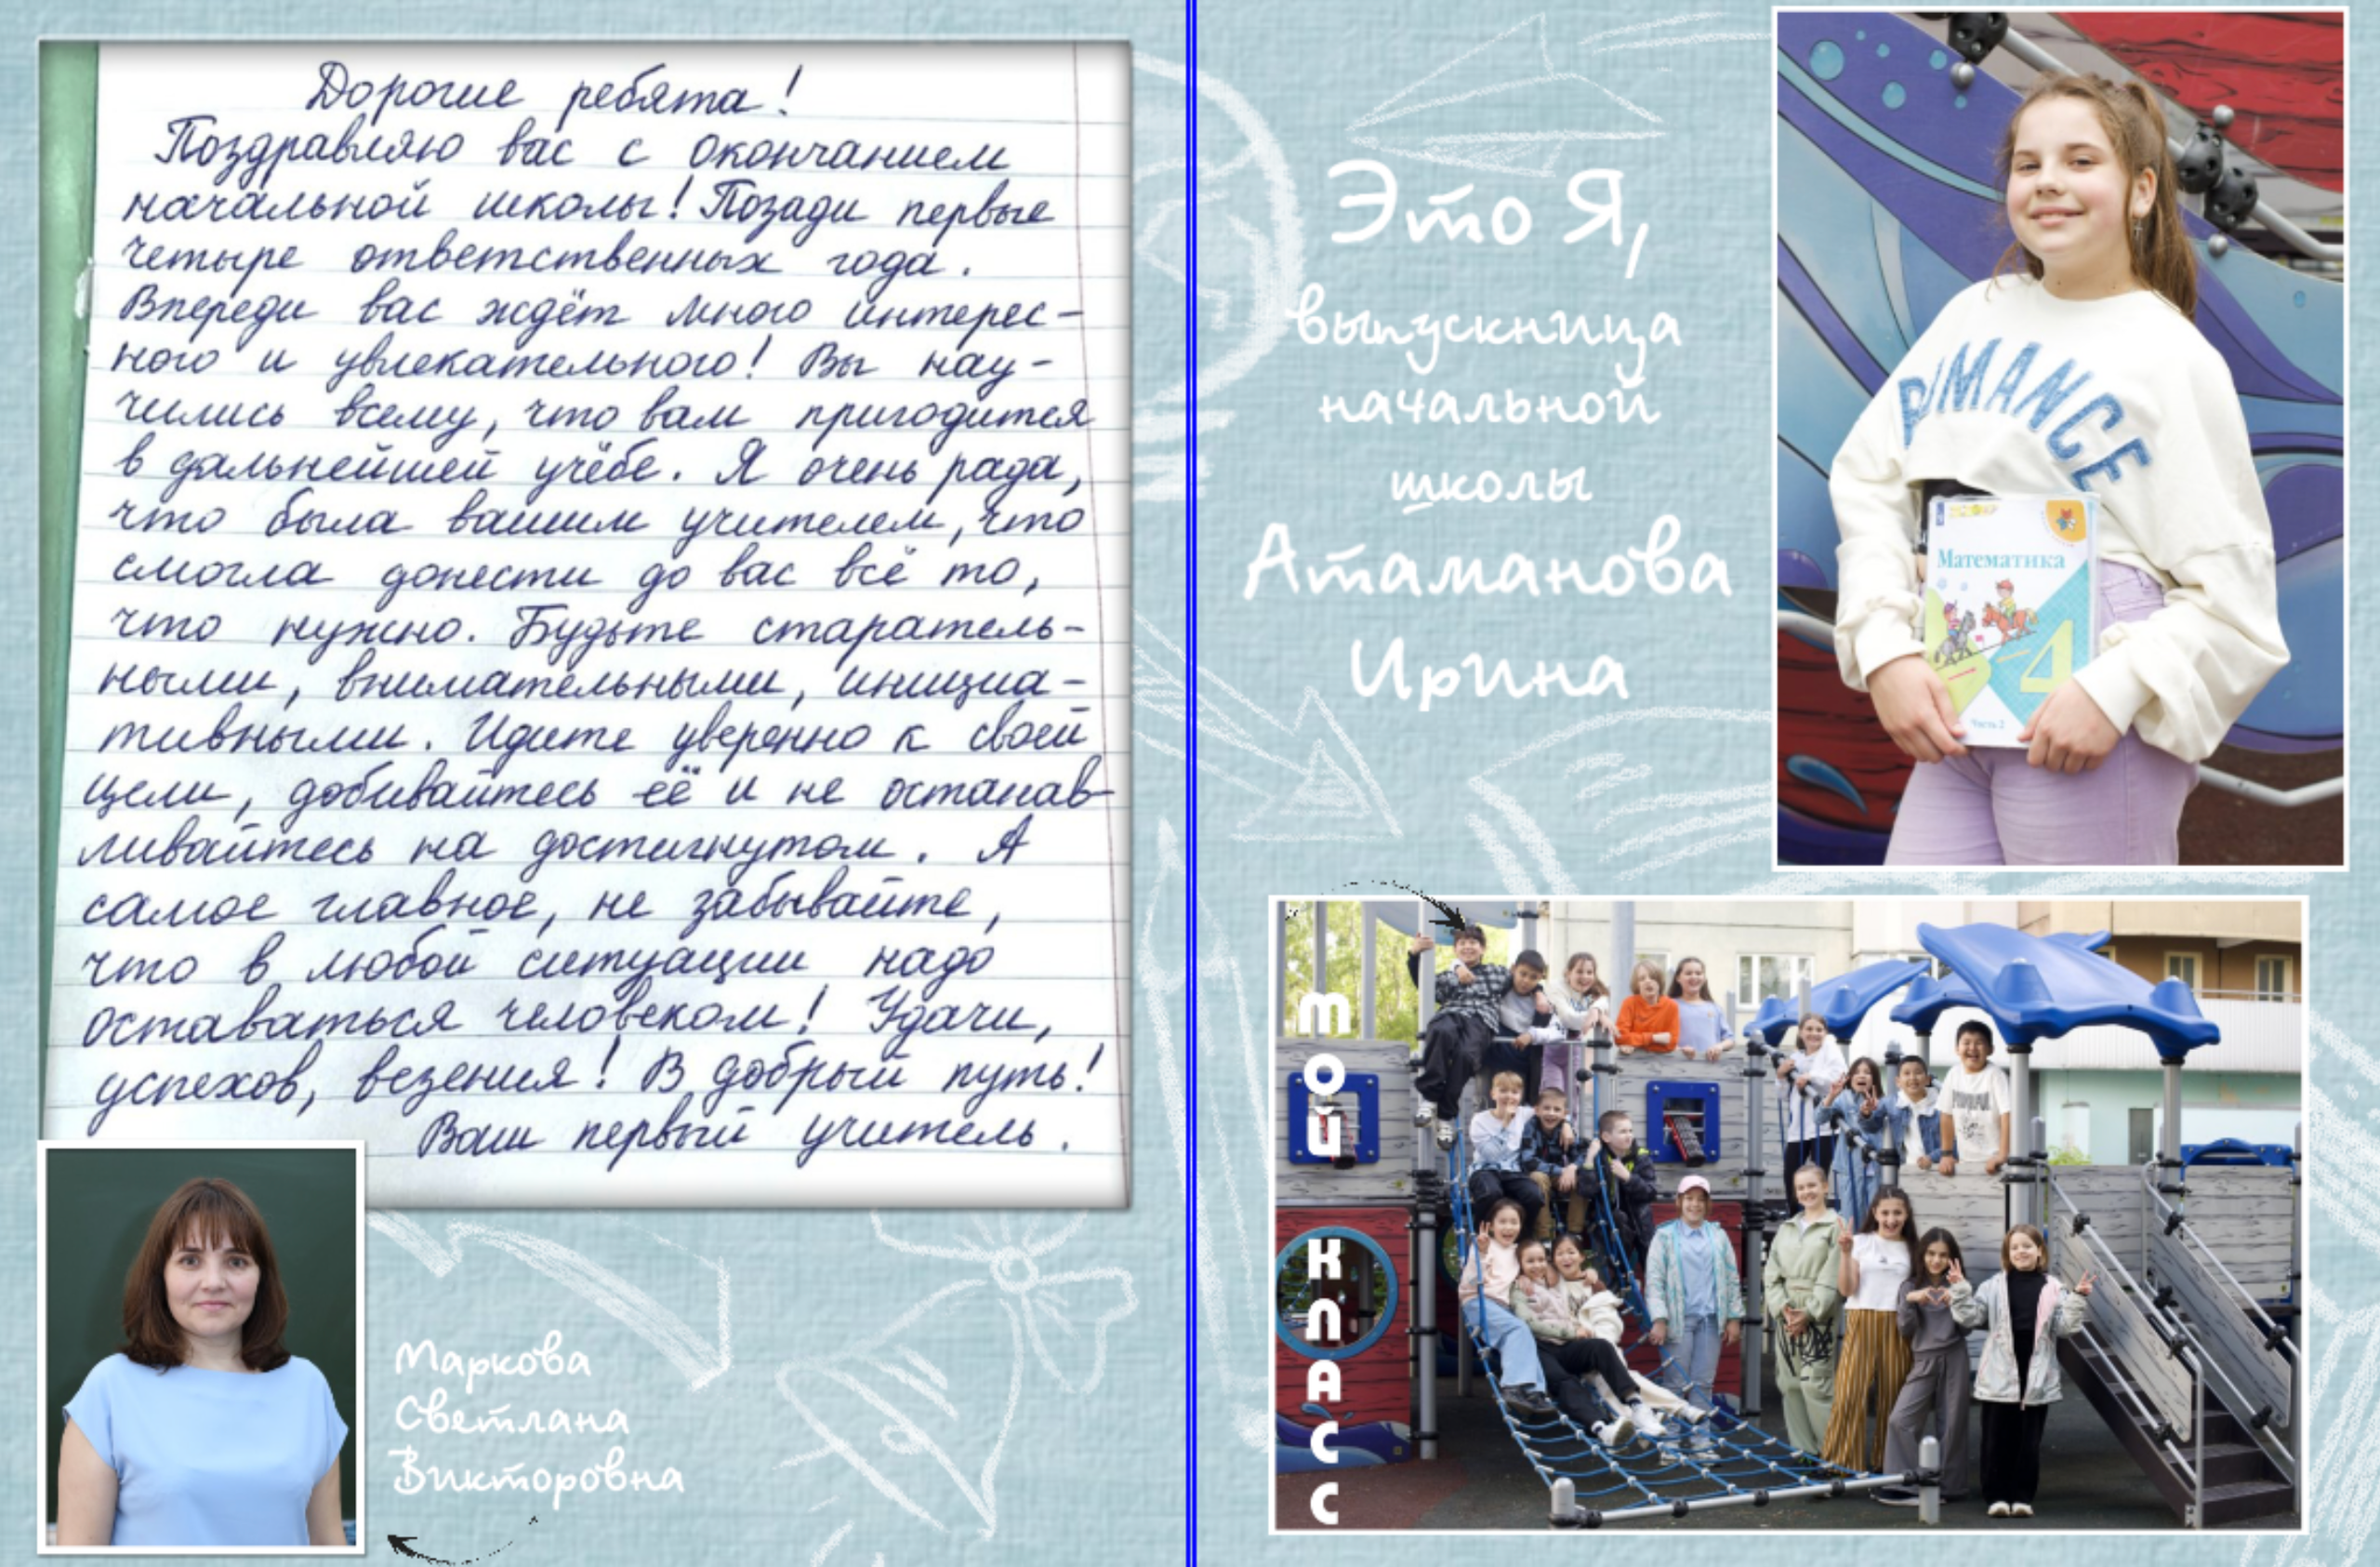 Дорогие ребята!
Поздравляю вас с окончанием
начальной школы! Позади первые
четыре ответственных года.
Впереди вас ждёт много интерес-
ного и увлекательного! Вы нау-
чились всему, что вам пригодится
в дальнейшей учёбе. Я очень рада,
что была вашим учителем, что
смогла донести до вас всё то,
что нужно. Будьте старатель-
ными, внимательными, инициа-
тивными. Идите уверенно к своей
цели, добивайтесь её и не останав-
ливайтесь на достигнутом. А
самое главное, не забывайте,
что в любой ситуации надо
оставаться человеком! Удачи,
успехов, везения! В добрый путь!
Ваш первый учитель.
Маркова
Светлана
Викторовна
Это Я,
выпускница
начальной
школы
Атаманова
Ирина
ROMANCE
Математика
4
Часть 2
мой класс